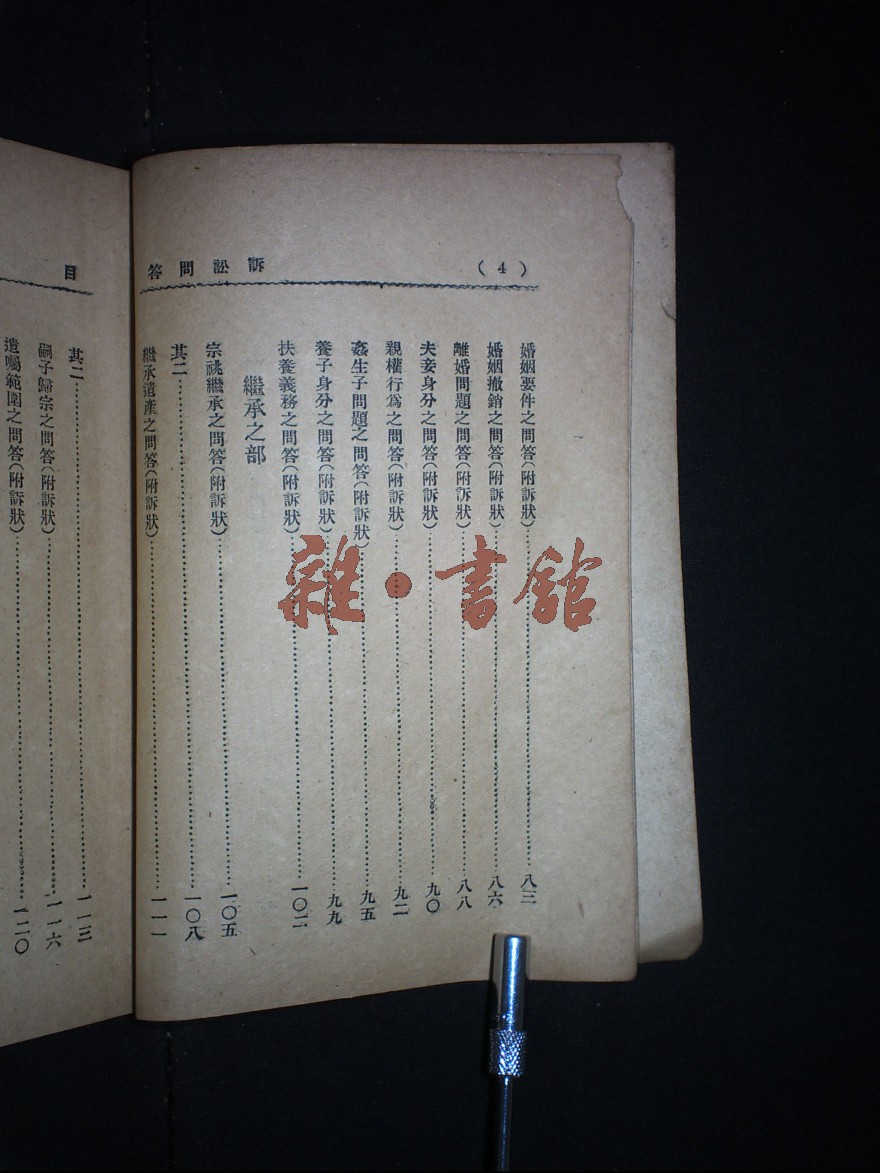 (4)
訴訟問答
婚姻要件之問答(附訴狀)……八三
婚姻撤銷之問答(附訴狀)……八六
離婚問題之問答(附訴狀)……八八
夫妾身分之問答(附訴狀)……九〇
親權行為之問答(附訴狀)……九二
姦生子問題之問答(附訴狀)……九五
養子身分之問答(附訴狀)……九九
扶養義務之問答(附訴狀)……一〇二
繼承之部
宗祧繼承之問答(附訴狀)……一〇五
其二……一〇八
繼承遺產之問答(附訴狀)……一一一
目
其二……一一三
嗣子歸宗之問答(附訴狀)……一一六
遺囑範圍之問答(附訴狀)……一二〇
雜·書館